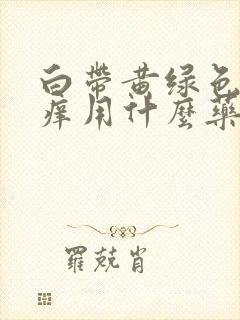 白帶黄绿色
痒用什麼藥
羅兢肖